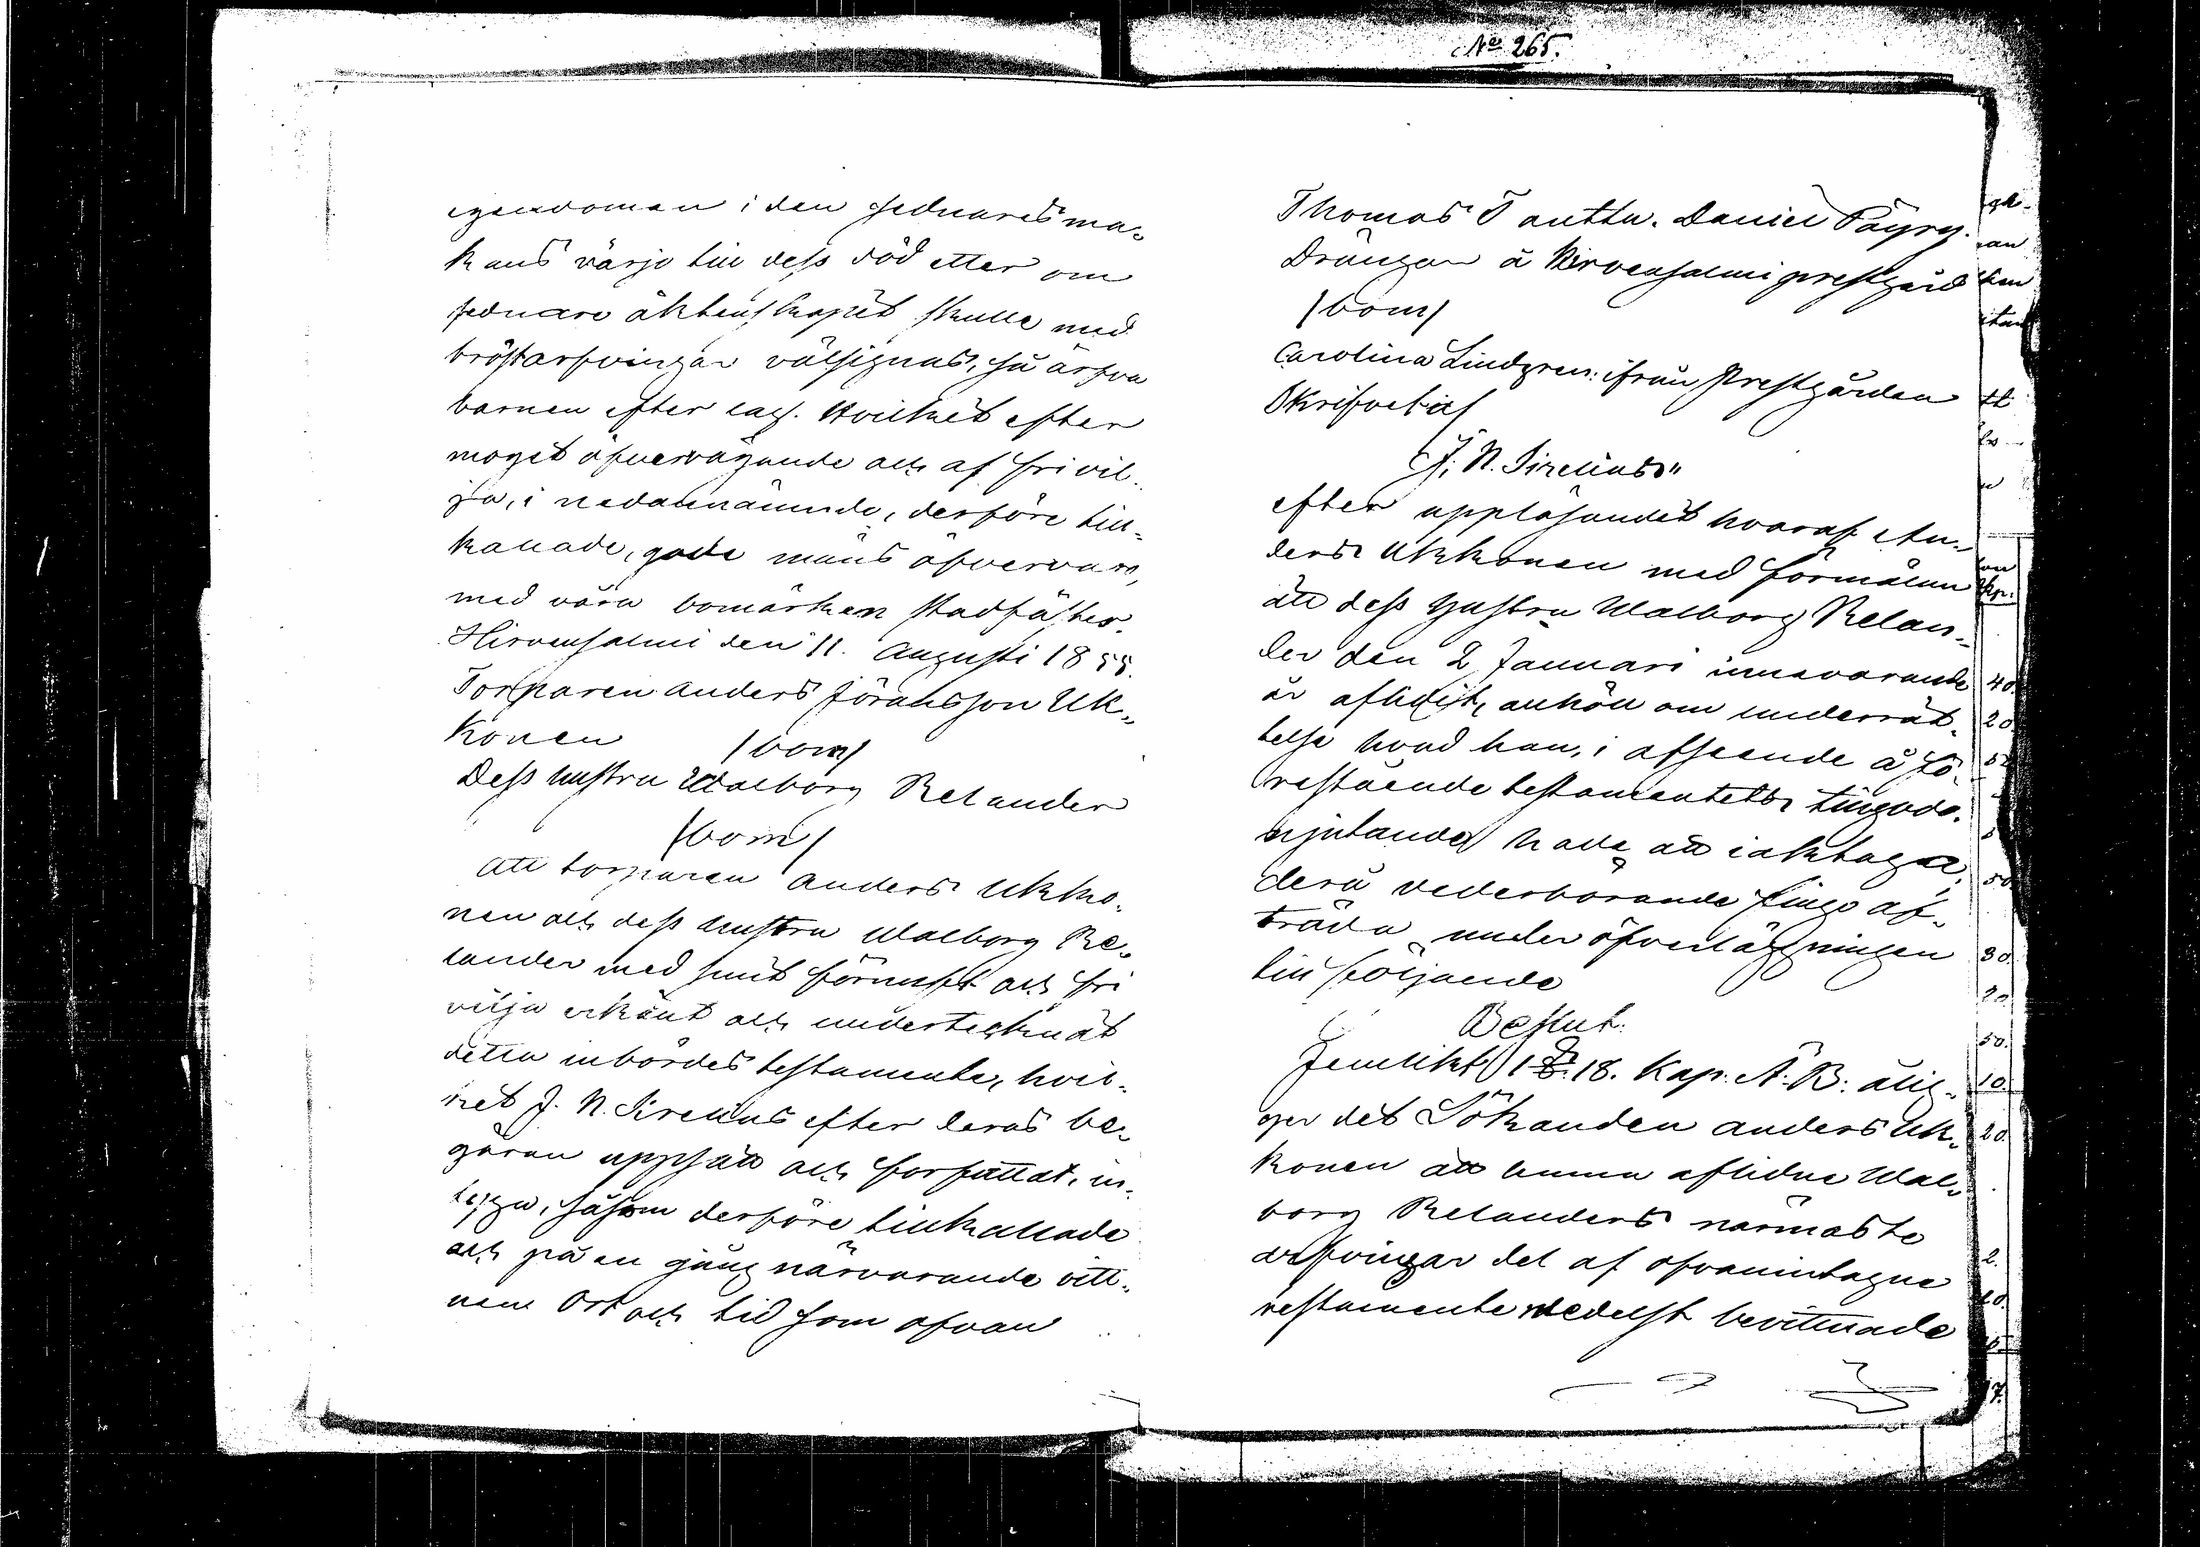 No 265.
egendomen i den sednares ma-
kans värjo till dess död eller om
sednare äktenskapet skulle med
bröstarfvingar välsignas, så ärfva
barnen efter lag. Hvilket efter
moget öfvervägande och af fri vil-
ja, i nedannämnde, derföre till-
kallade, gode mäns öfvervaro,
med våra bomärken stadfästes.
Hirvensalmi den 11. Augusti 1855.
Torparen Anders Göransson Uk-
konen /bom/
Dess hustru Walborg Relander
/bom/
Att torparen Anders Ukko-
nen och dess hustru Walborg Re-
lander med sunt förnuft och fri
vilja erkänt och undertecknat
detta inbördes testamente, hvil-
ket J. N. Sirelius efter deras be-
gäran uppsatt och författat, in-
tyga, såsom derföre tillkallade
och på en gång närvarande vitt-
nen Ort och tid som ofvan
Thomas Tanttu. Daniel Päyry.
Drängar å Hirvensalmi prestgård
/bom/
Carolina Lindgren: ifrån Prestgården
Skrifvet af
J. N. Sirelius"
efter uppläsandet hvaraf An-
ders Ukkonen med förmälan
att dess hustru Walborg Relan-
der den 2 Januari innevarande
år aflidit, anhöll om underrät-
telse hvad han, i afseende å fö-
restående testamentets tillgodo-
njutande hade att iakttaga;
derå vederbörande fingo af-
träda under öfverläggningen
till följande
Beslut:
Jemlikt 1 § 18. Kap. Ä. B: ålig-
ger det Sökanden Anders Uk-
konen att lemna aflidne Wal-
borg Relanders närmaste
arfvingar del af ofvanintagne
testamente medelst bevittnade
40.
20
50
30.
20.
50.
10.
20.
2.
17.